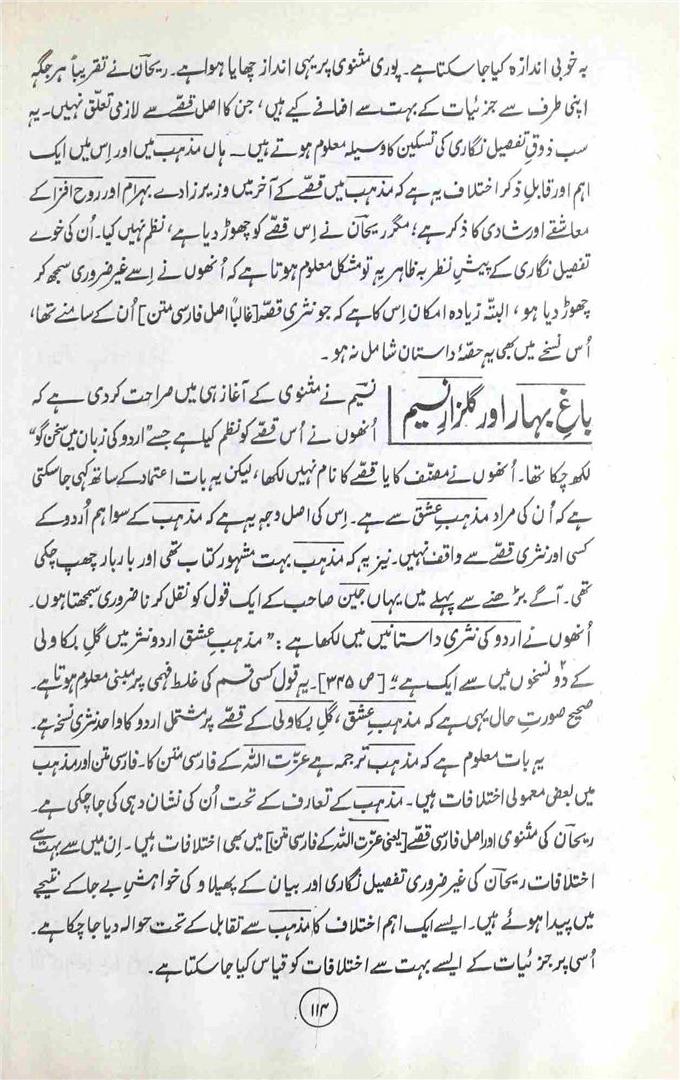 بہ خوبی اندازہ کیا جا سکتا ہے۔ پوری مثنوی پر یہی انداز چھایا ہوا ہے۔ ریحانؔ نے تقریباً ہر جگہ
اپنی طرف سے جزئیات کے بہت سے اضافے کیے ہیں، جن کا اصل قصّے سے لازمی تعلق نہیں۔ یہ
سب ذوقِ تفصیل نگاری کی تسکین کا وسیلہ معلوم ہوتے ہیں۔ ہاں مذہب میں اور اِس میں ایک
اہم اور قابلِ ذکر اختلاف یہ ہے کہ مذہب میں قصّے کے آخر میں وزیر زادے بہرام اور روح افزا کے
معاشقے اور شادی کا ذکر ہے؛ مگر ریحانؔ نے اِس قصّے کو چھوڑ دیا ہے، نظم نہیں کیا۔ اُن کی خوے
تفصیل نگاری کے پیشِ نظر بہ ظاہر یہ تو مشکل معلوم ہوتا ہے کہ اُنھوں نے اِسے غیر ضروری سمجھ کر
چھوڑ دیا ہو، البتّہ زیادہ امکان اِس کا ہے کہ جو نثری قصّہ [غالباً اصل فارسی متن] اُن کے سامنے تھا،
اُس نسخے میں بھی یہ حصّۂ داستان شامل نہ ہو۔
باغِ بہار اور گلزارِ نسیم
نسیمؔ نے مثنوی کے آغاز ہی میں صراحت کر دی ہے کہ
اُنھوں نے اُس قصّے کو نظم کیا ہے جسے "اردو کی زبان میں سخن گو"
لکھ چکا تھا۔ اُنھوں نے مصنّف کا یا قصّے کا نام نہیں لکھا، لیکن یہ بات اعتماد کے ساتھ کہی جا سکتی
ہے کہ اُن کی مراد مذہبِ عشق سے ہے۔ اِس کی اصل وجہ یہ ہے کہ مذہب کے سوا ہم اُردو کے
کسی اور نثری قصّے سے واقف نہیں۔ نیز یہ کہ مذہب بہت مشہور کتاب تھی اور بار بار چھپ چکی
تھی۔ آگے بڑھنے سے پہلے میں یہاں جین صاحب کے ایک قول کو نقل کرنا ضروری سمجھتا ہوں۔
اُنھوں نے اردو کی نثری داستانیں میں لکھا ہے: "مذہبِ عشق اردو نثر میں گلِ بکاولی
کے دو۲ نسخوں میں سے ایک ہے" [ص ۳۴۵]۔ یہ قول کسی قسم کی غلط فہمی پر مبنی معلوم ہوتا ہے۔
صحیح صورتِ حال یہی ہے کہ مذہبِ عشق، گلِ بکاولی کے قصّے پر مشتمل اردو کا واحد نثری نسخہ ہے۔
یہ بات معلوم ہے کہ مذہب ترجمہ ہے عزّت اللہ کے فارسی متن کا۔ فارسی متن اور مذہب
میں بعض معمولی اختلافات ہیں۔ مذہب کے تعارف کے تحت اُن کی نشان دہی کی جا چکی ہے۔
ریحانؔ کی مثنوی اور اصل فارسی قصّے [یعنی عزّت اللہ کے فارسی متن] میں بھی اختلافات ہیں۔ اِن میں سے بہت سے
اختلافات ریحانؔ کی غیر ضروری تفصیل نگاری اور بیان کے پھیلاو کی خواہشِ بے جا کے نتیجے
میں پیدا ہوئے ہیں۔ ایسے ایک اہم اختلاف کا مذہب سے تقابل کے تحت حوالہ دیا جا چکا ہے۔
اُسی پر جزئیات کے ایسے بہت سے اختلافات کو قیاس کیا جا سکتا ہے۔
۱۱۴